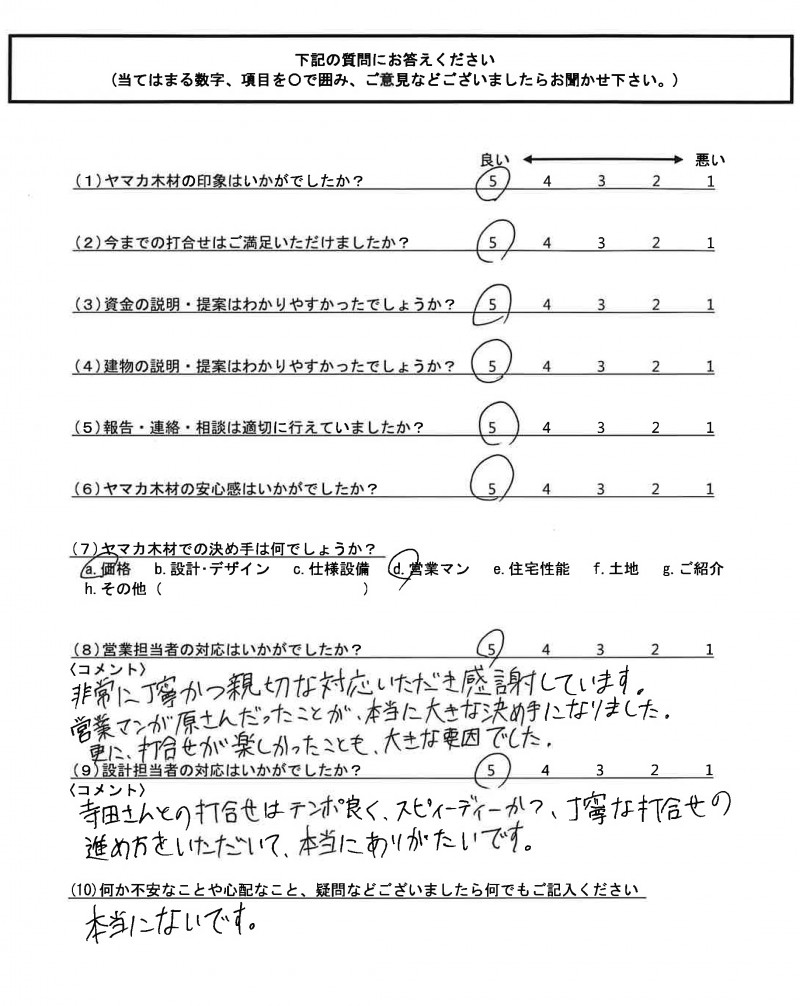 下記の質問にお答えください
(当てはまる数字、項目を〇で囲み、ご意見などございましたらお聞かせ下さい。)
良い 悪い
(1)ヤマカ木材の印象はいかがでしたか? 5 4 3 2 1
(2)今までの打合せはご満足いただけましたか? 5 4 3 2 1
(3)資金の説明・提案はわかりやすかったでしょうか? 5 4 3 2 1
(4)建物の説明・提案はわかりやすかったでしょうか? 5 4 3 2 1
(5)報告・連絡・相談は適切に行えていましたか? 5 4 3 2 1
(6)ヤマカ木材の安心感はいかがでしたか? 5 4 3 2 1
(7)ヤマカ木材での決め手は何でしょうか?
a.価格 b.設計・デザイン c.仕様設備 d.営業マン e.住宅性能 f.土地 g.ご紹介
h.その他( )
(8)営業担当者の対応はいかがでしたか? 5 4 3 2 1
〈コメント〉
非常に丁寧かつ親切な対応いただき感謝しています。
営業マンが原さんだったことが、本当に大きな決め手になりました。
更に、打合せが楽しかったことも、大きな要因でした。
(9)設計担当者の対応はいかがでしたか? 5 4 3 2 1
〈コメント〉
寺田さんとの打合せはテンポ良く、スピィーディーかつ、丁寧な打合せの
進め方をいただいて、本当にありがたいです。
(10)何か不安なことや心配なこと、疑問などございましたら何でもご記入ください
本当にないです。